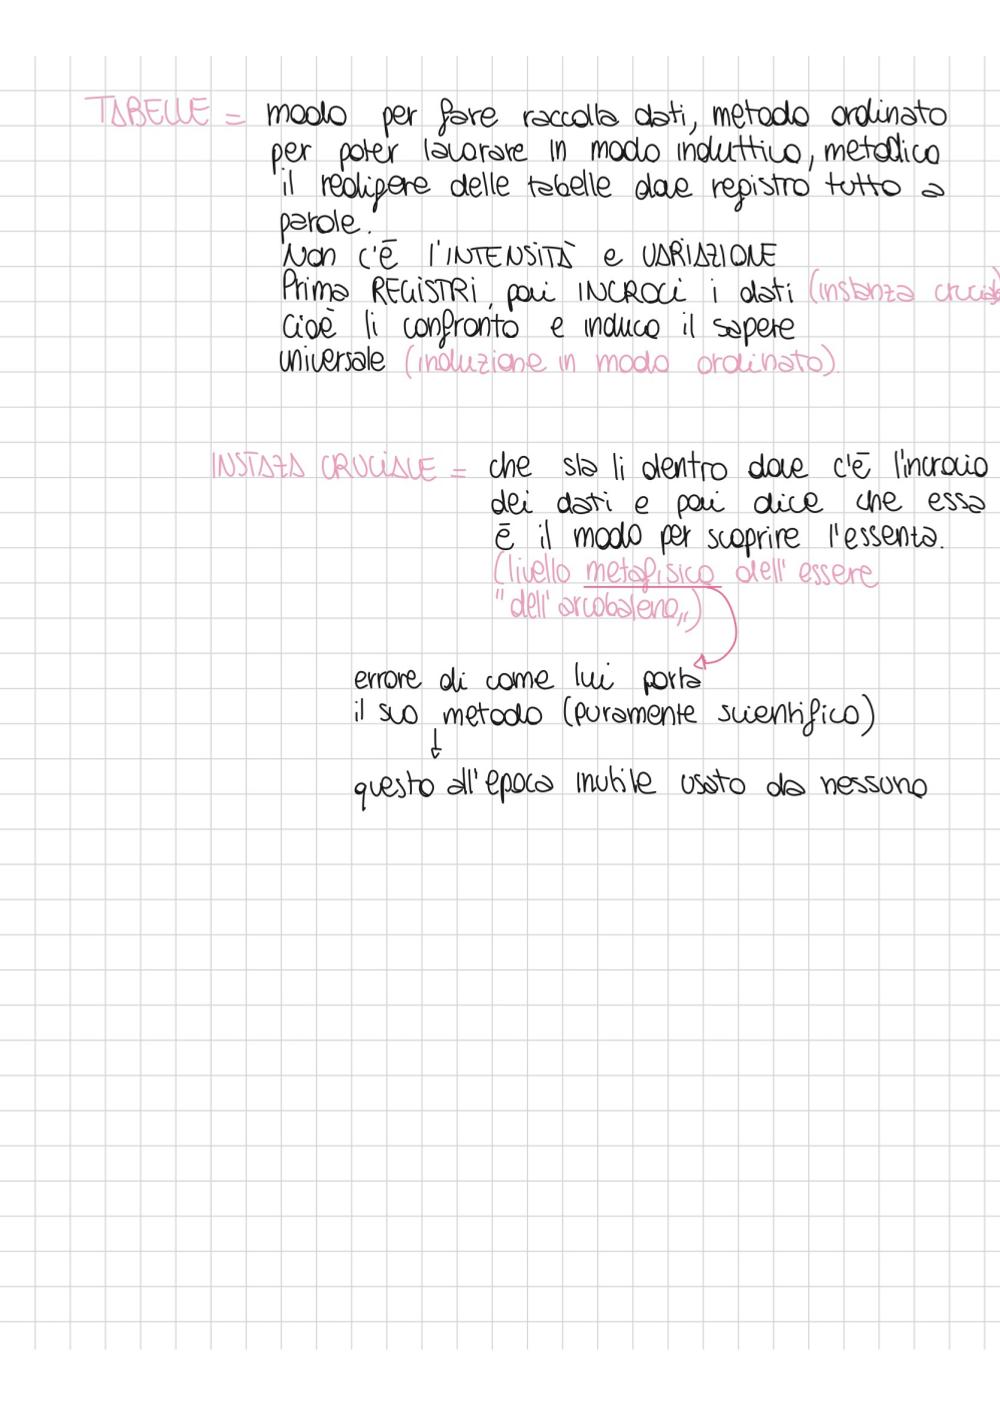 TABELLE = modo per fare raccolta dati, metodo ordinato
per poter lavorare in modo induttivo, metodico
il redigere delle tabelle dove registro tutto a
parole.
Non c'è l'INTENSITÀ e VARIAZIONE
Prima REGISTRI, poi INCROCI i dati (instanza
cioè li confronto e induco il sapere
universale (induzione in modo ordinato).
INSTAZA CRUCIALE = che sta li dentro dove c'è l'incrocio
dei dati e poi dice che essa
è il modo per scoprire l'essenta.
(livello metafisico dell'essere
"dell'arcobaleno„)
errore di come lui porta
il suo metodo (puramente scientifico)
↓
questo all'epoca inutile usato da nessuno